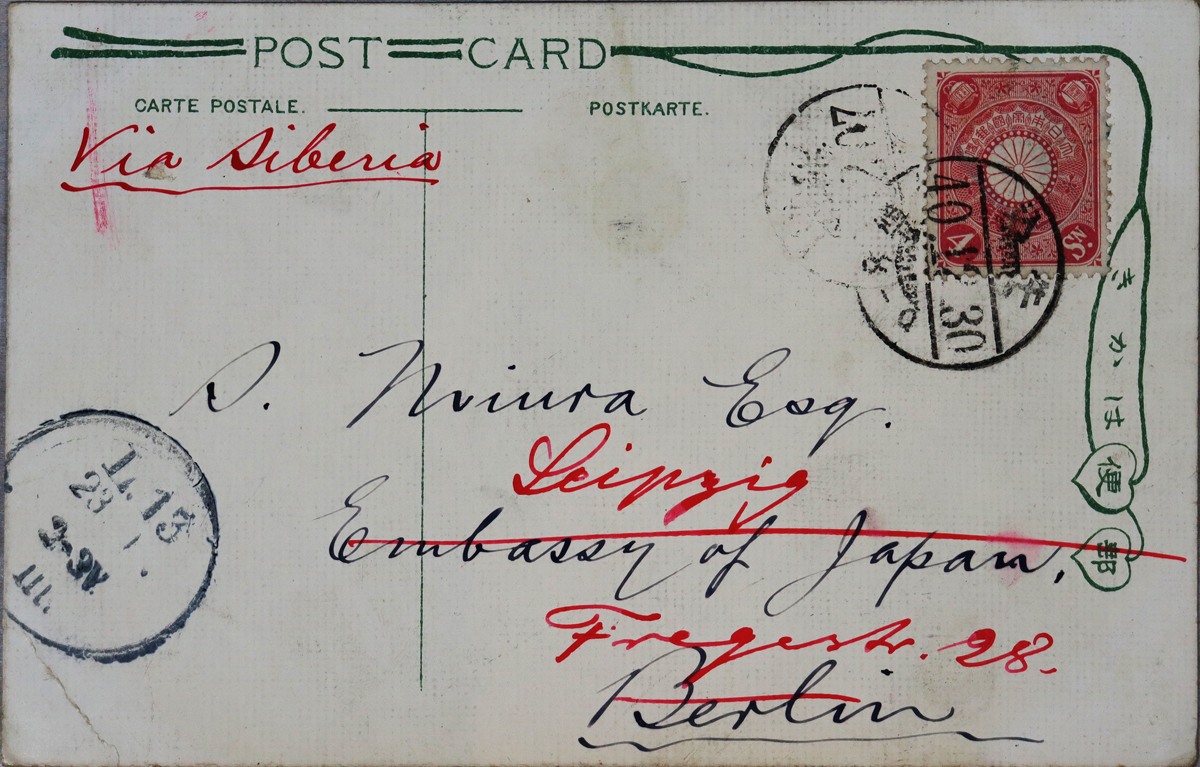 POST CARD
CARTE POSTALE.
POSTKARTE.
Via Siberia
S. Miura Esq.
Leipzig
Embassy of Japan,
Fregestr. 28.
Berlin
きかは便郵
4 Sn.
40 12 30
L. 13
23 1
3-3N
III